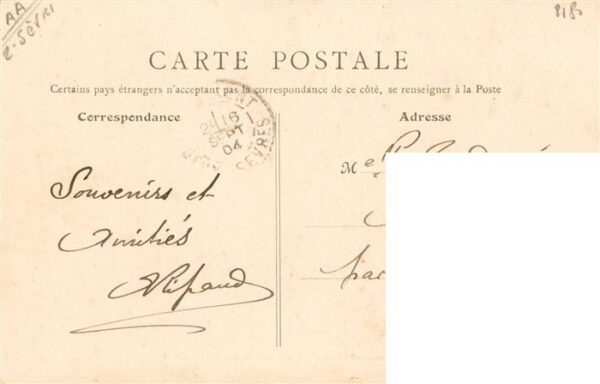 AA
2-Sèvri
2185
CARTE POSTALE
Certains pays étrangers n'acceptant pas la correspondance de ce côté, se renseigner à la Poste
Correspondance
Adresse
16
SEPT
04
SEVRES
Me
Souvenirs et
Amitiés